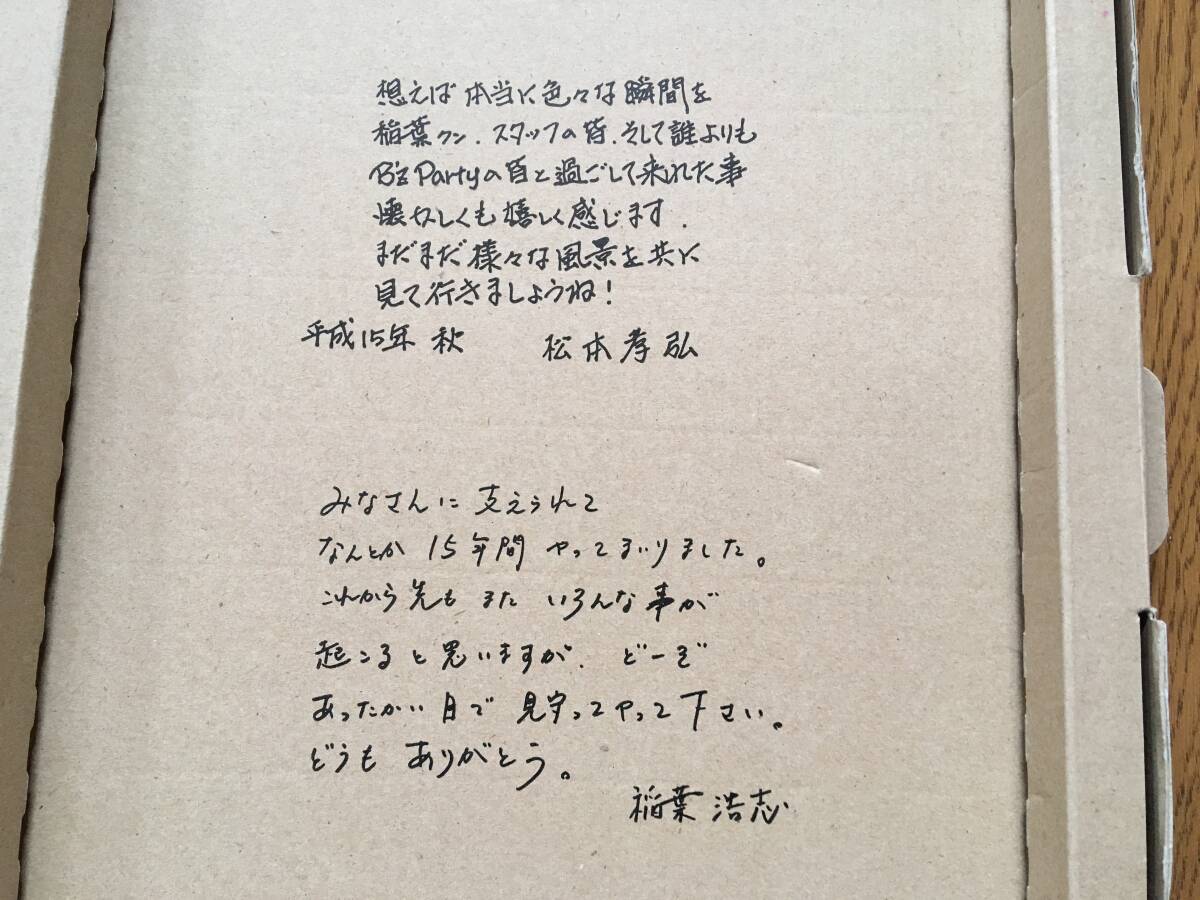 想えば 本当に色々な瞬間を
稲葉クン.スタッフの皆.そして誰よりも
B'z Partyの皆と過ごして来れた事
懐かしくも嬉しく感じます.
まだまだ様々な風景を共に
見て行きましょうね!
平成15年 秋 松本孝弘
みなさんに 支えられて
なんとか 15年間 やってまいりました。
これから先も また いろんな事が
起こると思いますが. どーぞ
あったかい目で 見守ってやって下さい。
どうも ありがとう。
稲葉浩志